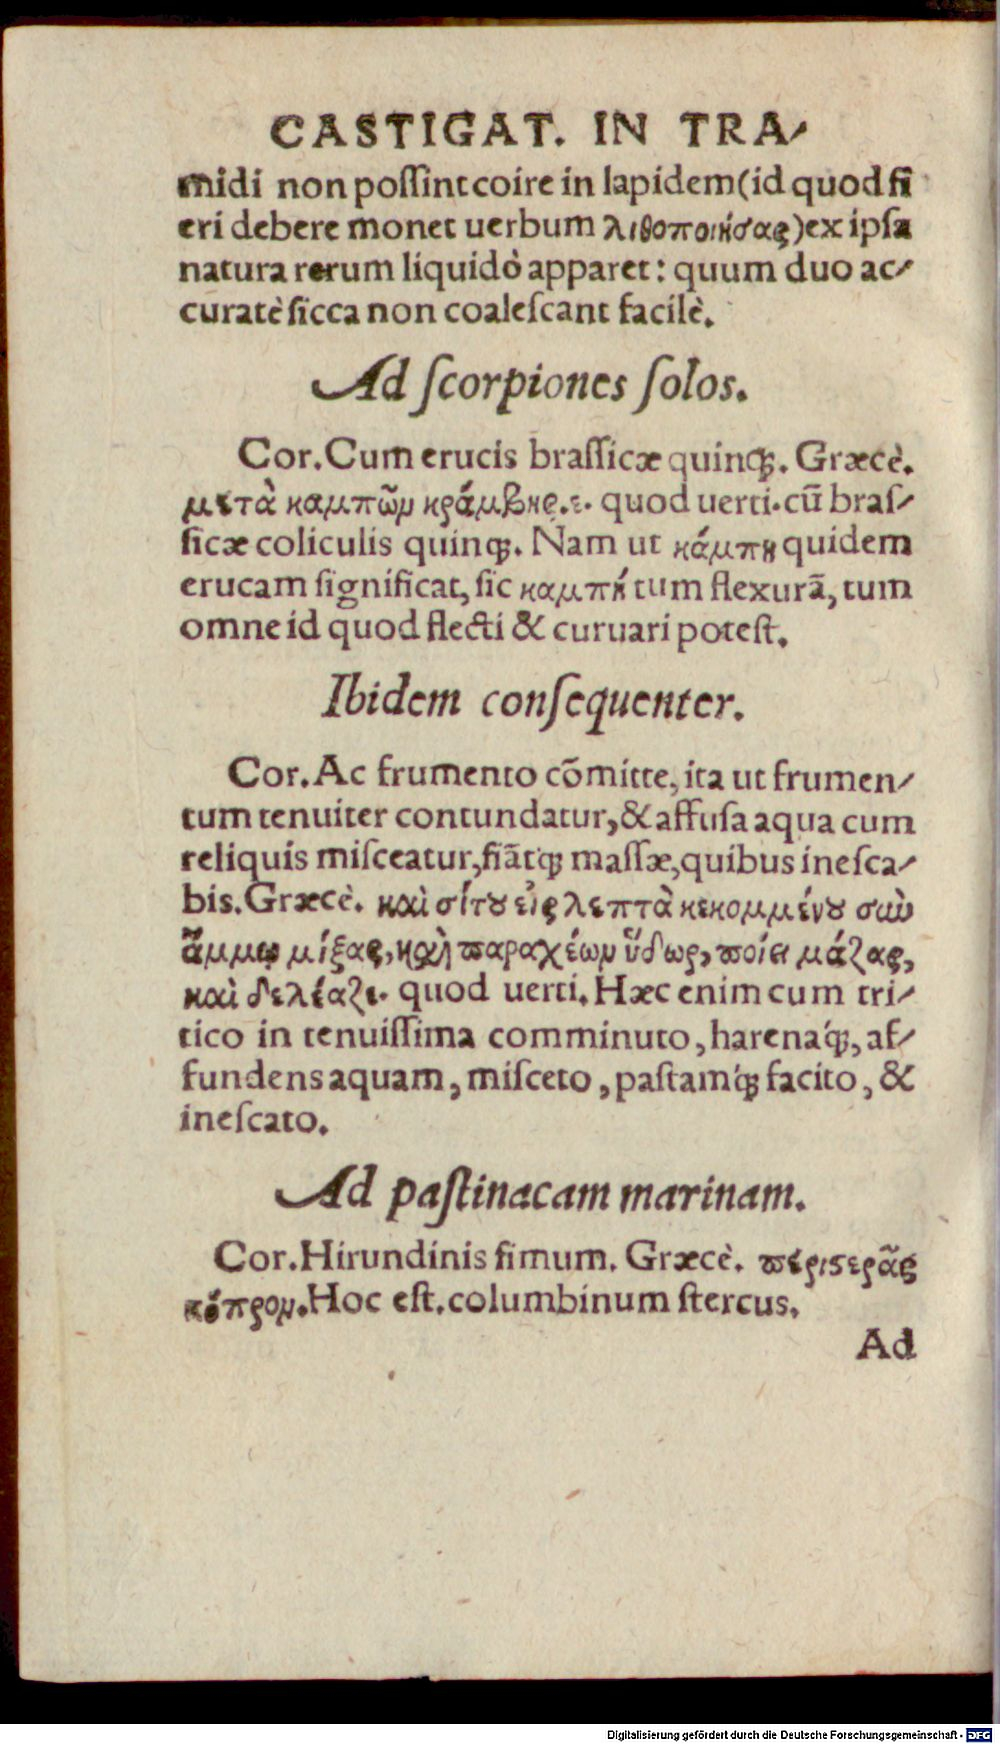 CASTIGAT. IN TRA-
midi non poſſint coire in lapidem (id quod fi
eri debere monet uerbum λιθοποιήσας) ex ipſa
natura rerum liquidò apparet: quum duo ac-
curatè ſicca non coaleſcant facilè.
Ad ſcorpiones ſolos.
Cor. Cum erucis braſſicæ quinqꝫ. Græcè.
μετὰ καμπῶν κράμβης.ε. quod uerti. cū braſ-
ſicæ coliculis quinqꝫ. Nam ut κάμπη quidem
erucam ſignificat, ſic καμπή tum flexurā, tum
omne id quod flecti & curuari poteſt.
Ibidem conſequenter.
Cor. Ac frumento cōmitte, ita ut frumen-
tum tenuiter contundatur, & affuſa aqua cum
reliquis miſceatur, fiātqꝫ maſſæ, quibus ineſca-
bis. Græcè. καὶ σίτου εἰς λεπτὰ κεκομμένου σὺν
ἄμμῳ μίξας, καὶ παραχέων ὕδωρ, ποίει μάζας,
καὶ δελέαζε. quod uerti. Hæc enim cum tri-
tico in tenuiſſima comminuto, harenaq́ꝫ, af-
fundens aquam, miſceto, paſtamq́ꝫ facito, &
ineſcato.
Ad paſtinacam marinam.
Cor. Hirundinis fimum. Græcè. πέριστερᾶς
κόπρον. Hoc eſt. columbinum ſtercus.
Ad
Digitalisierung gefördert durch die Deutsche Forschungsgemeinschaft - DFG